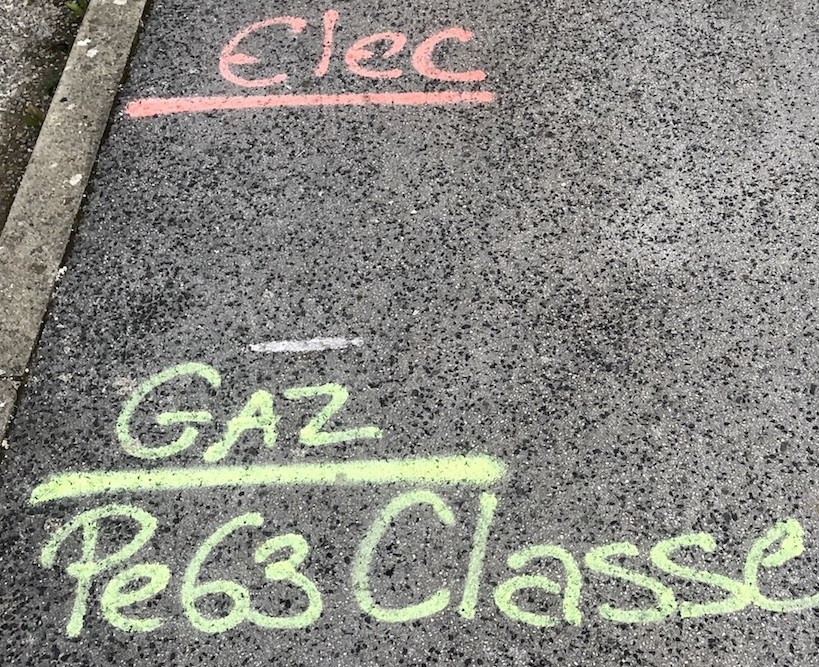 Elec
GAZ
Pe63 Classe